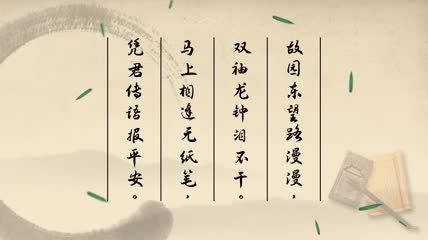 故园东望路漫漫，
双袖龙钟泪不干。
马上相逢无纸笔，
凭君传语报平安。